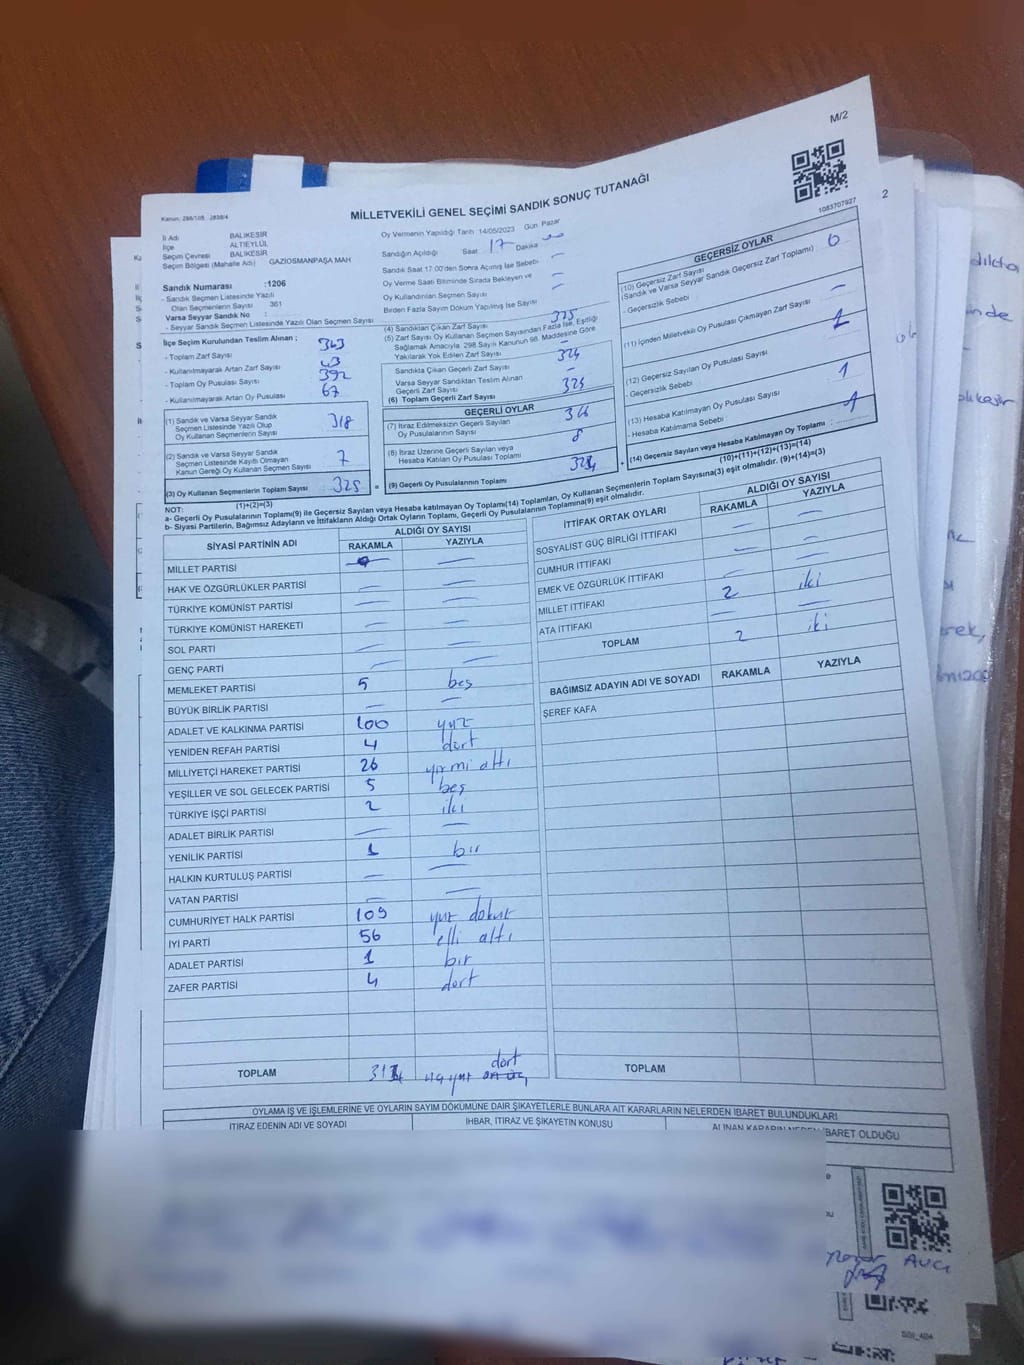 M/2
Kanun: 298/105, 2839/4
MİLLETVEKİLİ GENEL SEÇİMİ SANDIK SONUÇ TUTANAĞI
1083707927
2
İl Adı BALIKESİR
İlçe ALTIEYLÜL
Seçim Çevresi BALIKESİR
Seçim Bölgesi (Mahalle Adı) GAZİOSMANPAŞA MAH
Sandık Numarası :1206
- Sandık Seçmen Listesinde Yazılı
Olan Seçmenlerin Sayısı 361
Varsa Seyyar Sandık No :
- Seyyar Sandık Seçmen Listesinde Yazılı Olan Seçmen Sayısı
Oy Vermenin Yapıldığı Tarih 14/05/2023 Gün Pazar
Sandığın Açıldığı Saat 17 Dakika
Sandık Saat 17.00'den Sonra Açılmış İse Sebebi —
Oy Verme Saati Bitiminde Sırada Bekleyen ve
Oy Kullandırılan Seçmen Sayısı —
Birden Fazla Sayım Döküm Yapılmış İse Sayısı —
İlçe Seçim Kurulundan Teslim Alınan ;
- Toplam Zarf Sayısı 363
- Kullanılmayarak Artan Zarf Sayısı
- Toplam Oy Pusulası Sayısı 392
- Kullanılmayarak Artan Oy Pusulası 67
(1) Sandık ve Varsa Seyyar Sandık
Seçmen Listesinde Yazılı Olup
Oy Kullanan Seçmenlerin Sayısı 318
(2) Sandık ve Varsa Seyyar Sandık
Seçmen Listesinde Kayıtlı Olmayan
Kanun Gereği Oy Kullanan Seçmen Sayısı 7
(3) Oy Kullanan Seçmenlerin Toplam Sayısı 325
(1)+(2)=(3)
(4) Sandıktan Çıkan Zarf Sayısı 325
(5) Zarf Sayısı Oy Kullanan Seçmen Sayısından Fazla İse, Eşitliği
Sağlamak Amacıyla, 298 Sayılı Kanunun 98. Maddesine Göre
Yakılarak Yok Edilen Zarf Sayısı
Sandıkta Çıkan Geçerli Zarf Sayısı
Varsa Seyyar Sandıktan Teslim Alınan
Geçerli Zarf Sayısı —
(6) Toplam Geçerli Zarf Sayısı 325
GEÇERLİ OYLAR
(7) İtiraz Edilmeksizin Geçerli Sayılan
Oy Pusulalarının Sayısı
(8) İtiraz Üzerine Geçerli Sayılan veya
Hesaba Katılan Oy Pusulası Toplamı 8
(9) Geçerli Oy Pusulalarının Toplamı
GEÇERSİZ OYLAR
(10) Geçersiz Zarf Sayısı
(Sandık ve Varsa Seyyar Sandık Geçersiz Zarf Toplamı)
- Geçersizlik Sebebi
(11) İçinden Milletvekili Oy Pusulası Çıkmayan Zarf Sayısı —
(12) Geçersiz Sayılan Oy Pusulası Sayısı
- Geçersizlik Sebebi
(13) Hesaba Katılmayan Oy Pusulası Sayısı 1
- Hesaba Katılmama Sebebi
(14) Geçersiz Sayılan veya Hesaba Katılmayan Oy Toplamı : 1
(10)+(11)+(12)+(13)=(14)
NOT:
a- Geçerli Oy Pusulalarının Toplamı(9) ile Geçersiz Sayılan veya Hesaba Katılmayan Oy Toplamı(14) Toplamları, Oy Kullanan Seçmenlerin Toplam Sayısına(3) eşit olmalıdır. (9)+(14)=(3)
b- Siyasi Partilerin, Bağımsız Adayların ve İttifakların Aldığı Ortak Oyların Toplamı, Geçerli Oy Pusulalarının Toplamına(9) eşit olmalıdır.
SİYASİ PARTİNİN ADI ALDIĞI OY SAYISI
RAKAMLA YAZIYLA
MİLLET PARTİSİ —
HAK VE ÖZGÜRLÜKLER PARTİSİ — —
TÜRKİYE KOMÜNİST PARTİSİ — —
TÜRKİYE KOMÜNİST HAREKETİ — —
SOL PARTİ — —
GENÇ PARTİ — —
MEMLEKET PARTİSİ 5 beş
BÜYÜK BİRLİK PARTİSİ — —
ADALET VE KALKINMA PARTİSİ 100 yüz
YENİDEN REFAH PARTİSİ 4 dört
MİLLİYETÇİ HAREKET PARTİSİ 26 yirmi altı
YEŞİLLER VE SOL GELECEK PARTİSİ 5 beş
TÜRKİYE İŞÇİ PARTİSİ 2 iki
ADALET BİRLİK PARTİSİ — —
YENİLİK PARTİSİ 1 bir
HALKIN KURTULUŞ PARTİSİ — —
VATAN PARTİSİ — —
CUMHURİYET HALK PARTİSİ 109 yüz dokuz
İYİ PARTİ 56 elli altı
ADALET PARTİSİ 1 bir
ZAFER PARTİSİ 4 dört
TOPLAM dört
İTTİFAK ORTAK OYLARI ALDIĞI OY SAYISI
RAKAMLA YAZIYLA
SOSYALİST GÜÇ BİRLİĞİ İTTİFAKI — —
CUMHUR İTTİFAKI — —
EMEK VE ÖZGÜRLÜK İTTİFAKI — —
MİLLET İTTİFAKI 2 iki
ATA İTTİFAKI — —
TOPLAM 2 iki
BAĞIMSIZ ADAYIN ADI VE SOYADI RAKAMLA YAZIYLA
ŞEREF KAFA
TOPLAM
OYLAMA İŞ VE İŞLEMLERİNE VE OYLARIN SAYIM DÖKÜMÜNE DAİR ŞİKAYETLERLE BUNLARA AİT KARARLARIN NELERDEN İBARET BULUNDUKLARI
İTİRAZ EDENİN ADI VE SOYADI İHBAR, İTİRAZ VE ŞİKAYETİN KONUSU ALINAN KARARIN NEDEN İBARET OLDUĞU
AVCI